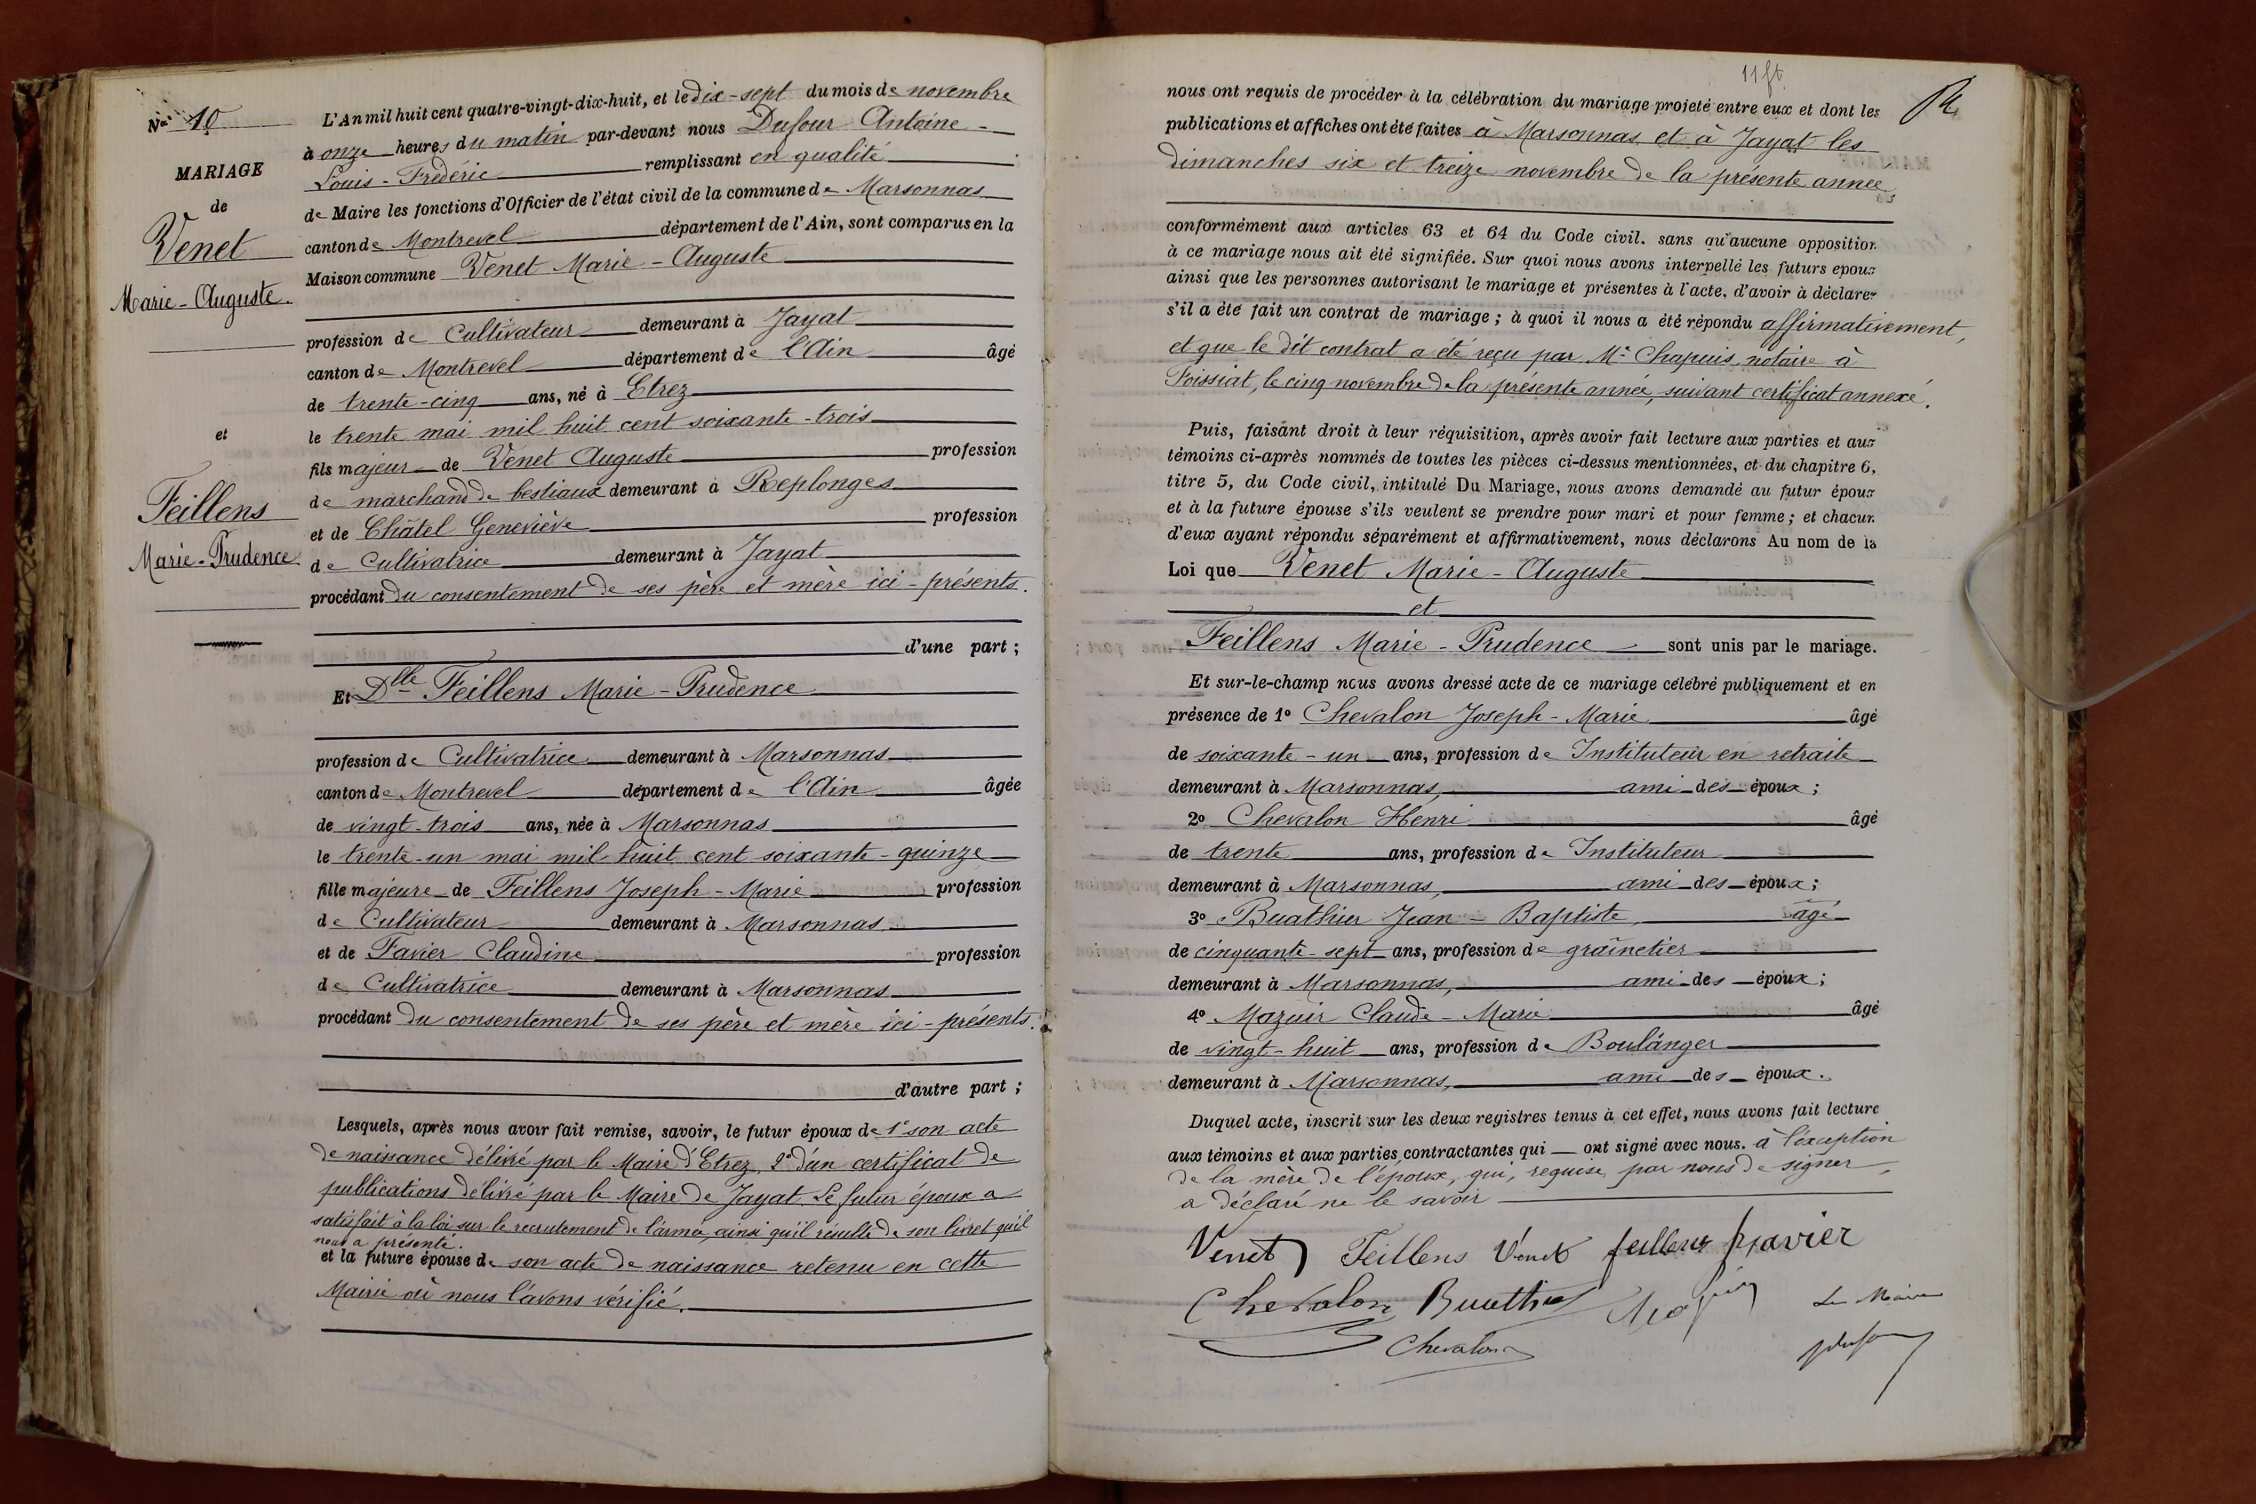 No 10
MARIAGE
de
Venet
Marie-Auguste.
et
Feillens
Marie-Prudence
L'An mil huit cent quatre-vingt-dix-huit, et le dix-sept du mois de novembre
à onze heures du matin par-devant nous Dufour Antoine-
Louis-Frédéric remplissant en qualité
de Maire les fonctions d'Officier de l'état civil de la commune de Marsonnas
canton de Montrevel département de l'Ain, sont comparus en la
Maison commune Venet Marie-Auguste
profession de Cultivateur demeurant à Jayat
canton de Montrevel département de l'Ain âgé
de trente-cinq ans, né à Etrez
le trente mai mil huit cent soixante-trois
fils majeur de Venet Auguste profession
de marchand de bestiaux demeurant à Replonges
et de Châtel Geneviève profession
de Cultivatrice demeurant à Jayat
procédant du consentement de ses père et mère ici-présents.
d'une part ;
Et Dlle Feillens Marie-Prudence
profession de Cultivatrice demeurant à Marsonnas
canton de Montrevel département de l'Ain âgée
de vingt-trois ans, née à Marsonnas
le trente-un mai mil huit cent soixante-quinze
fille majeure de Feillens Joseph-Marie profession
de Cultivateur demeurant à Marsonnas
et de Favier Claudine profession
de Cultivatrice demeurant à Marsonnas
procédant du consentement de ses père et mère ici-présents.
d'autre part ;
Lesquels, après nous avoir fait remise, savoir, le futur époux de 1° son acte
de naissance délivré par le Maire d'Etrez, 2° d'un certificat de
publications délivré par le Maire de Jayat. Le futur époux a
satisfait à la loi sur le recrutement de l'armée, ainsi qu'il résulte de son livret qu'il
nous a présenté.
et la future épouse de son acte de naissance retenu en cette
Mairie où nous l'avons vérifié.
11 ft
nous ont requis de procéder à la célébration du mariage projeté entre eux et dont les
publications et affiches ont été faites à Marsonnas et à Jayat les
dimanches six et treize novembre de la présente année,
conformément aux articles 63 et 64 du Code civil. sans qu'aucune opposition
à ce mariage nous ait été signifiée. Sur quoi nous avons interpellé les futurs epoux
ainsi que les personnes autorisant le mariage et présentes à l'acte, d'avoir à déclarer
s'il a été fait un contrat de mariage ; à quoi il nous a été répondu affirmativement,
et que le dit contrat a été reçu par Me Chapuis, notaire à
Foissiat, le cinq novembre de la présente année, suivant certificat annexé.
Puis, faisant droit à leur réquisition, après avoir fait lecture aux parties et aux
témoins ci-après nommés de toutes les pièces ci-dessus mentionnées, et du chapitre 6,
titre 5, du Code civil, intitulé Du Mariage, nous avons demandé au futur époux
et à la future épouse s'ils veulent se prendre pour mari et pour femme ; et chacun
d'eux ayant répondu séparément et affirmativement, nous déclarons Au nom de la
Loi que Venet Marie-Auguste
et
Feillens Marie-Prudence sont unis par le mariage.
Et sur-le-champ nous avons dressé acte de ce mariage célébré publiquement et en
présence de 1° Chevalon Joseph-Marie âgé
de soixante-un ans, profession de Instituteur en retraite
demeurant à Marsonnas, ami des époux ;
2° Chevalon Henri âgé
de trente ans, profession de Instituteur
demeurant à Marsonnas, ami des époux ;
3° Buathier Jean-Baptiste, âgé
de cinquante-sept ans, profession de graînetier
demeurant à Marsonnas, ami des époux ;
4° Mazuir Claude-Marie âgé
de vingt-huit ans, profession de Boulanger
demeurant à Marsonnas, ami des époux.
Duquel acte, inscrit sur les deux registres tenus à cet effet, nous avons fait lecture
aux témoins et aux parties contractantes qui ont signé avec nous. à l'exception
de la mère de l'époux, qui, requise par nous de signer,
a déclaré ne le savoir
Venet Feillens Venet feillens favier
Chevalon Buathier Mazuir Le Maire
Chevalon Dufour